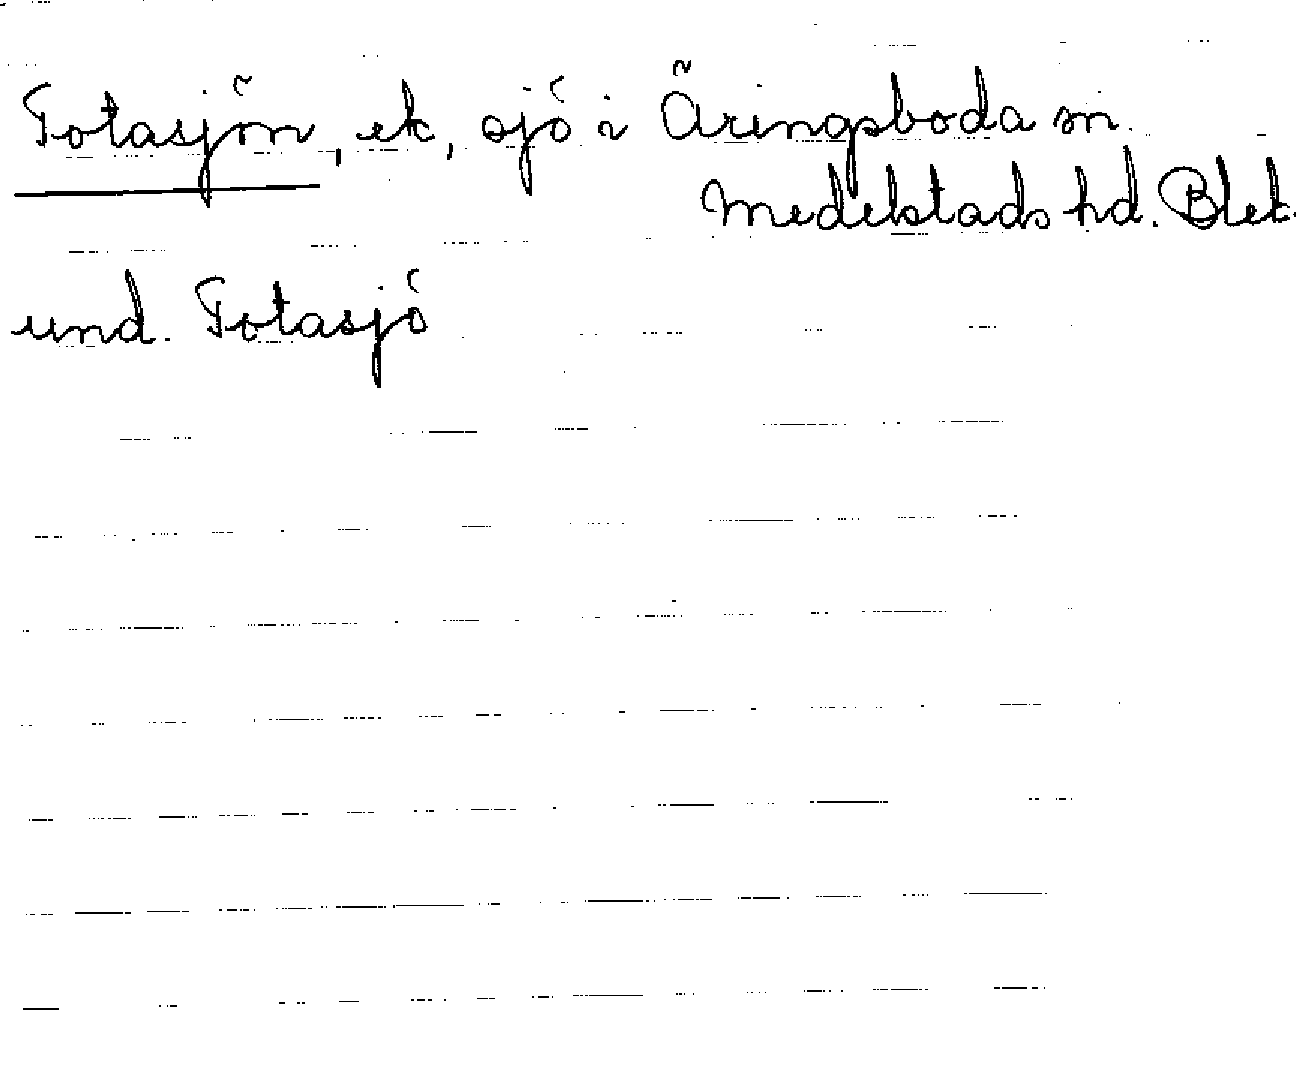 Totasjön, ek, sjö i Äringsboda sn.
Medelstads hd. Blek.
und. Totasjö